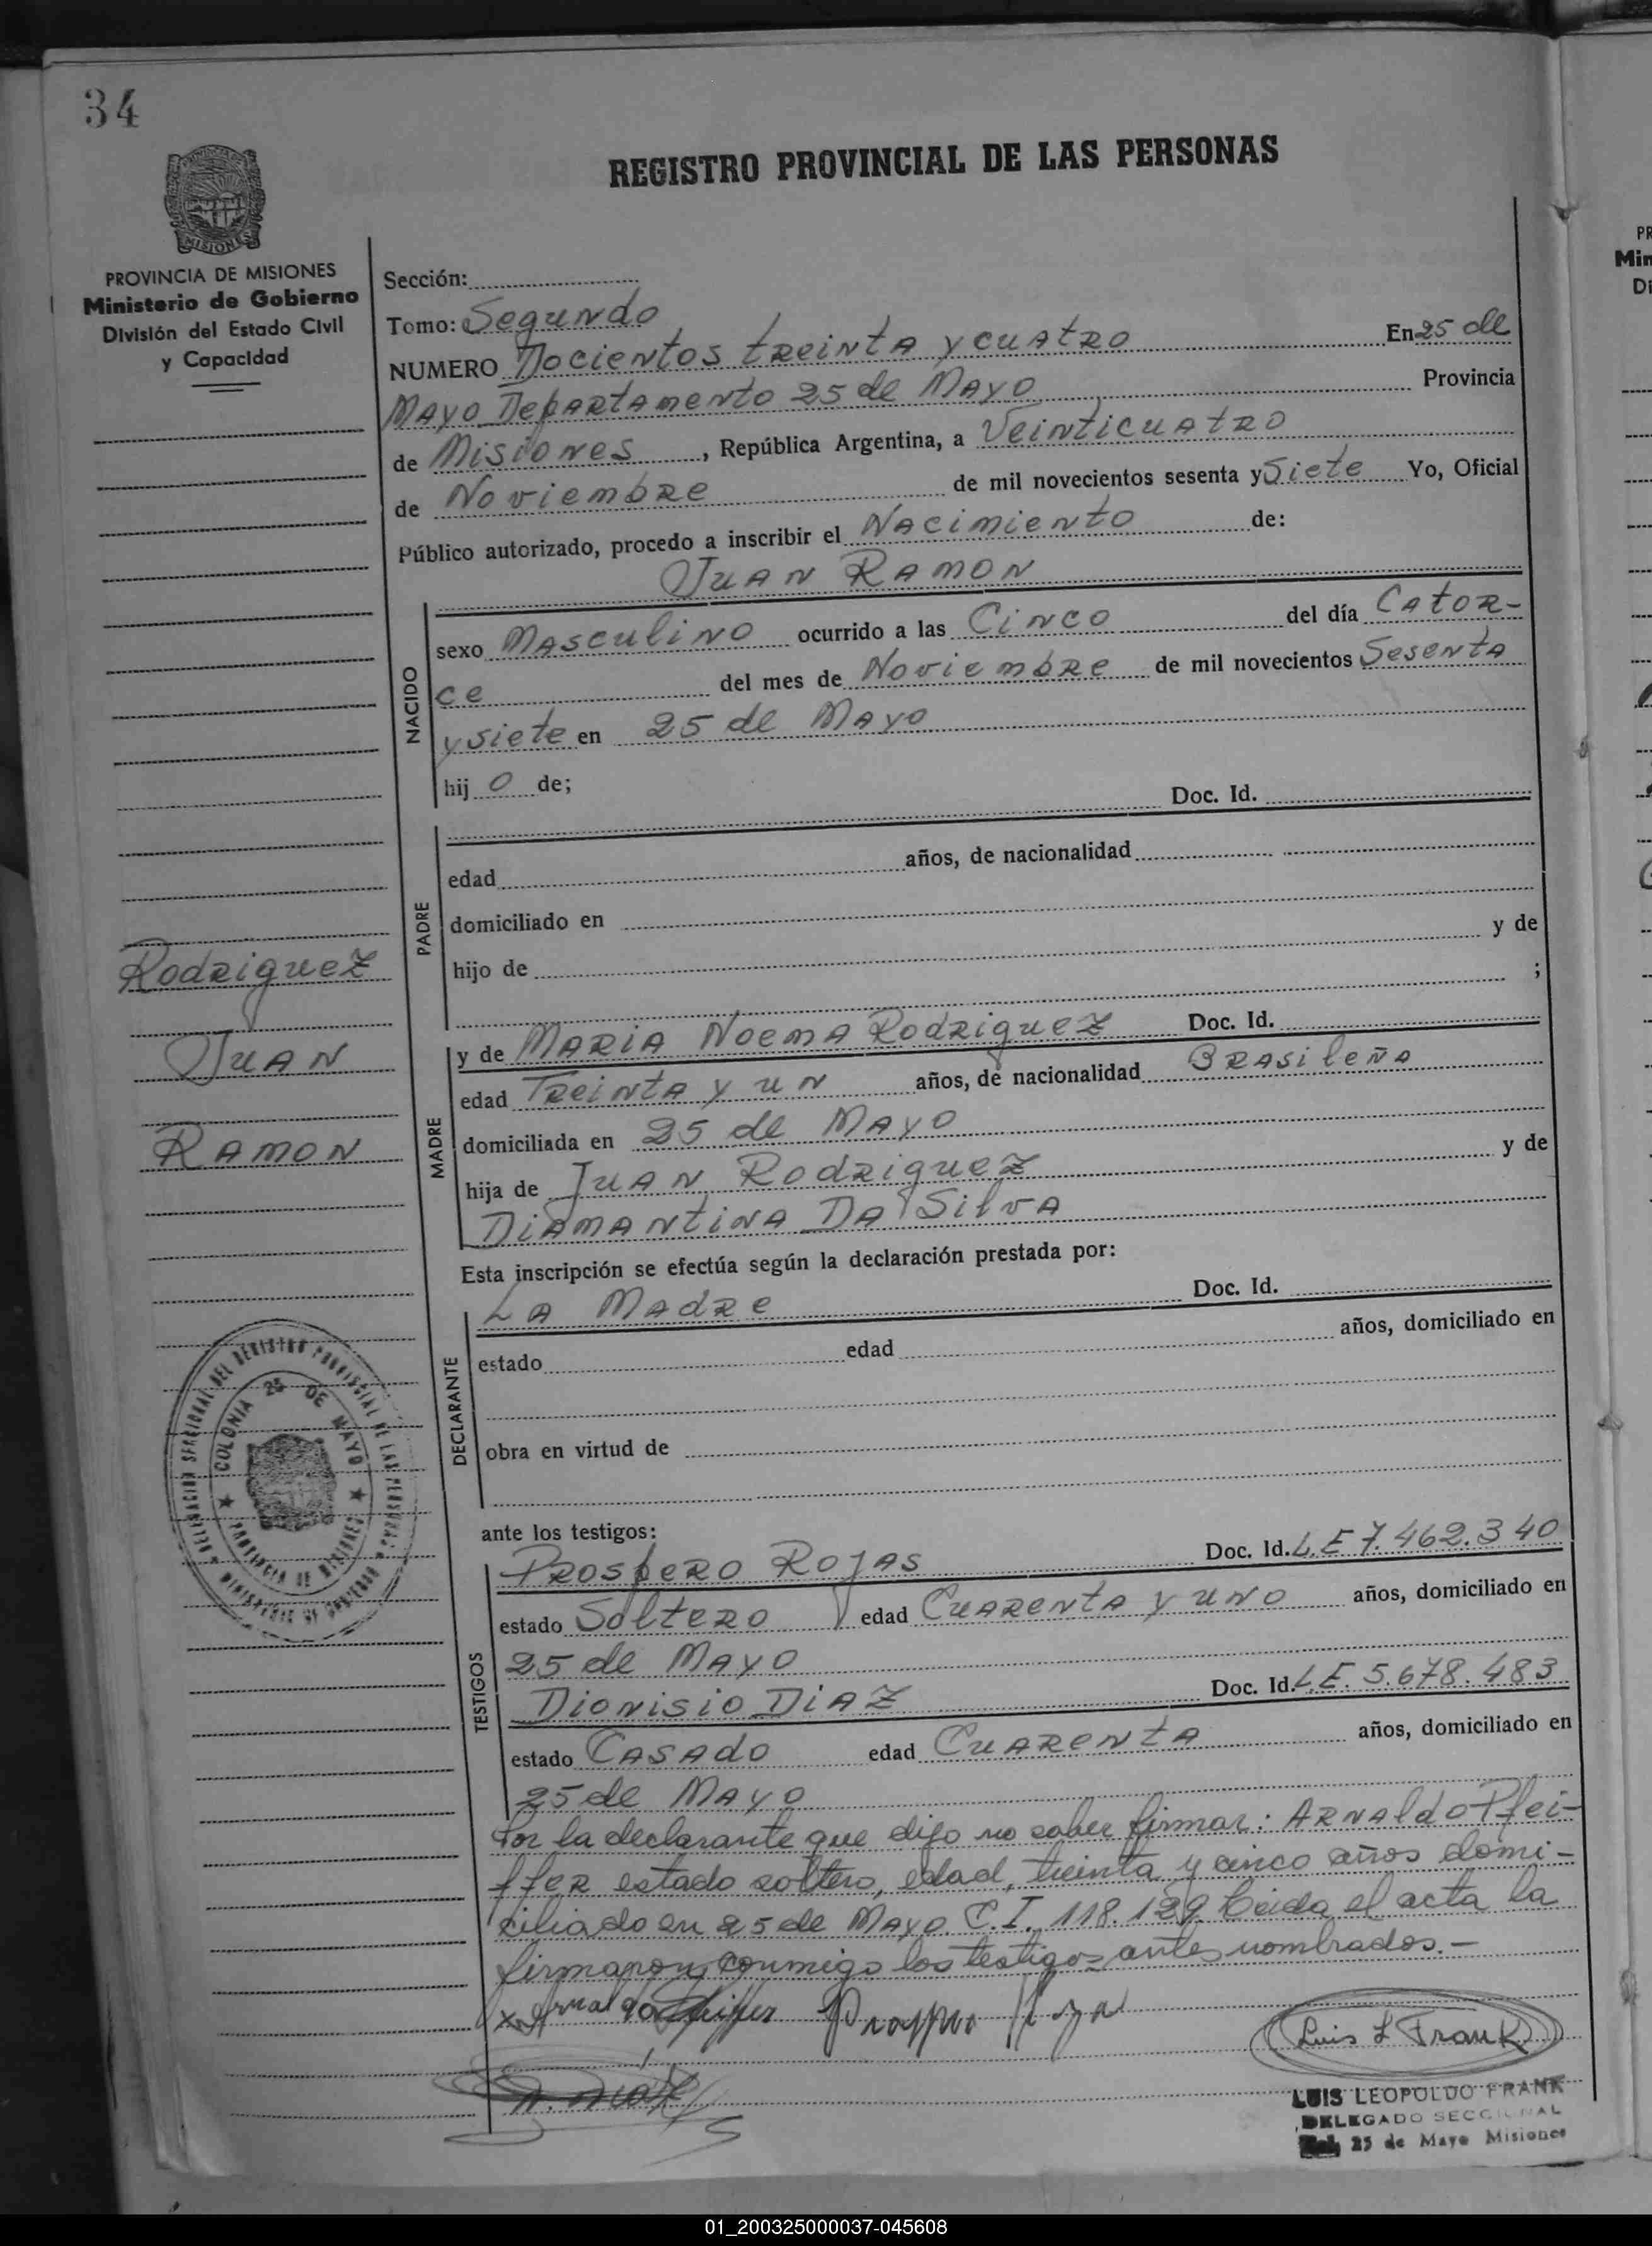 34
REGISTRO PROVINCIAL DE LAS PERSONAS
MISIONES
PROVINCIA DE MISIONES
Ministerio de Gobierno
División del Estado Civil
y Capacidad
Sección:
Tomo: Segundo
NUMERO Docientos treinta y cuatro En 25 de
Mayo Departamento 25 de Mayo Provincia
de Misiones, República Argentina, a Veinticuatro
de Noviembre de mil novecientos sesenta y Siete Yo, Oficial
Público autorizado, procedo a inscribir el Nacimiento de:
Juan Ramon
NACIDO
sexo Masculino ocurrido a las Cinco del día Cator-
ce del mes de Noviembre de mil novecientos Sesenta
y siete en 25 de Mayo
hij o de;
Doc. Id.
PADRE
edad años, de nacionalidad
domiciliado en
hijo de y de
;
Rodriguez
Juan
Ramon
MADRE
y de Maria Noema Rodriguez Doc. Id.
edad Treinta y un años, de nacionalidad Brasileña
domiciliada en 25 de Mayo
hija de Juan Rodriguez y de
Diamantina Da Silva
Esta inscripción se efectúa según la declaración prestada por:
DECLARANTE
La Madre Doc. Id.
estado edad años, domiciliado en
obra en virtud de
DELEGACION SECCIONAL DEL REGISTRO PROVINCIAL DE LAS PERSONAS
MINISTERIO DE GOBIERNO
COLONIA 25 DE MAYO
PROVINCIA DE MISIONES
ante los testigos:
TESTIGOS
Prospero Rojas Doc. Id. L.E 7.462.340
estado Soltero edad Cuarenta y uno años, domiciliado en
25 de Mayo
Dionisio Diaz Doc. Id. L.E. 5.678.483
estado Casado edad Cuarenta años, domiciliado en
25 de Mayo
Por la declarante que dijo no saber firmar: Arnaldo Pfei-
ffer estado soltero, edad, treinta y cinco años domi-
ciliado en 25 de Mayo. C.I. 118.129 Leida el acta la
firmaron conmigo los testigos antes nombrados.-
x Arnaldo Pfeiffer Prospero Roja
Luis L Frank
D. Diaz
LUIS LEOPOLDO FRANK
DELEGADO SECCIONAL
25 de Mayo Misiones
PR
Min
Di
01_200325000037-045608